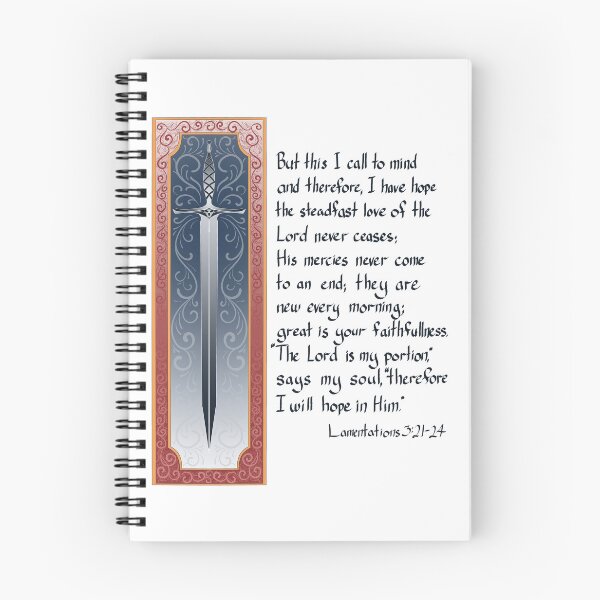 But this I call to mind
and therefore, I have hope
the steadfast love of the
Lord never ceases;
His mercies never come
to an end; they are
new every morning;
great is your faithfullness.
"The Lord is my portion,"
says my soul, "therefore
I will hope in Him."
Lamentations 3:21-24